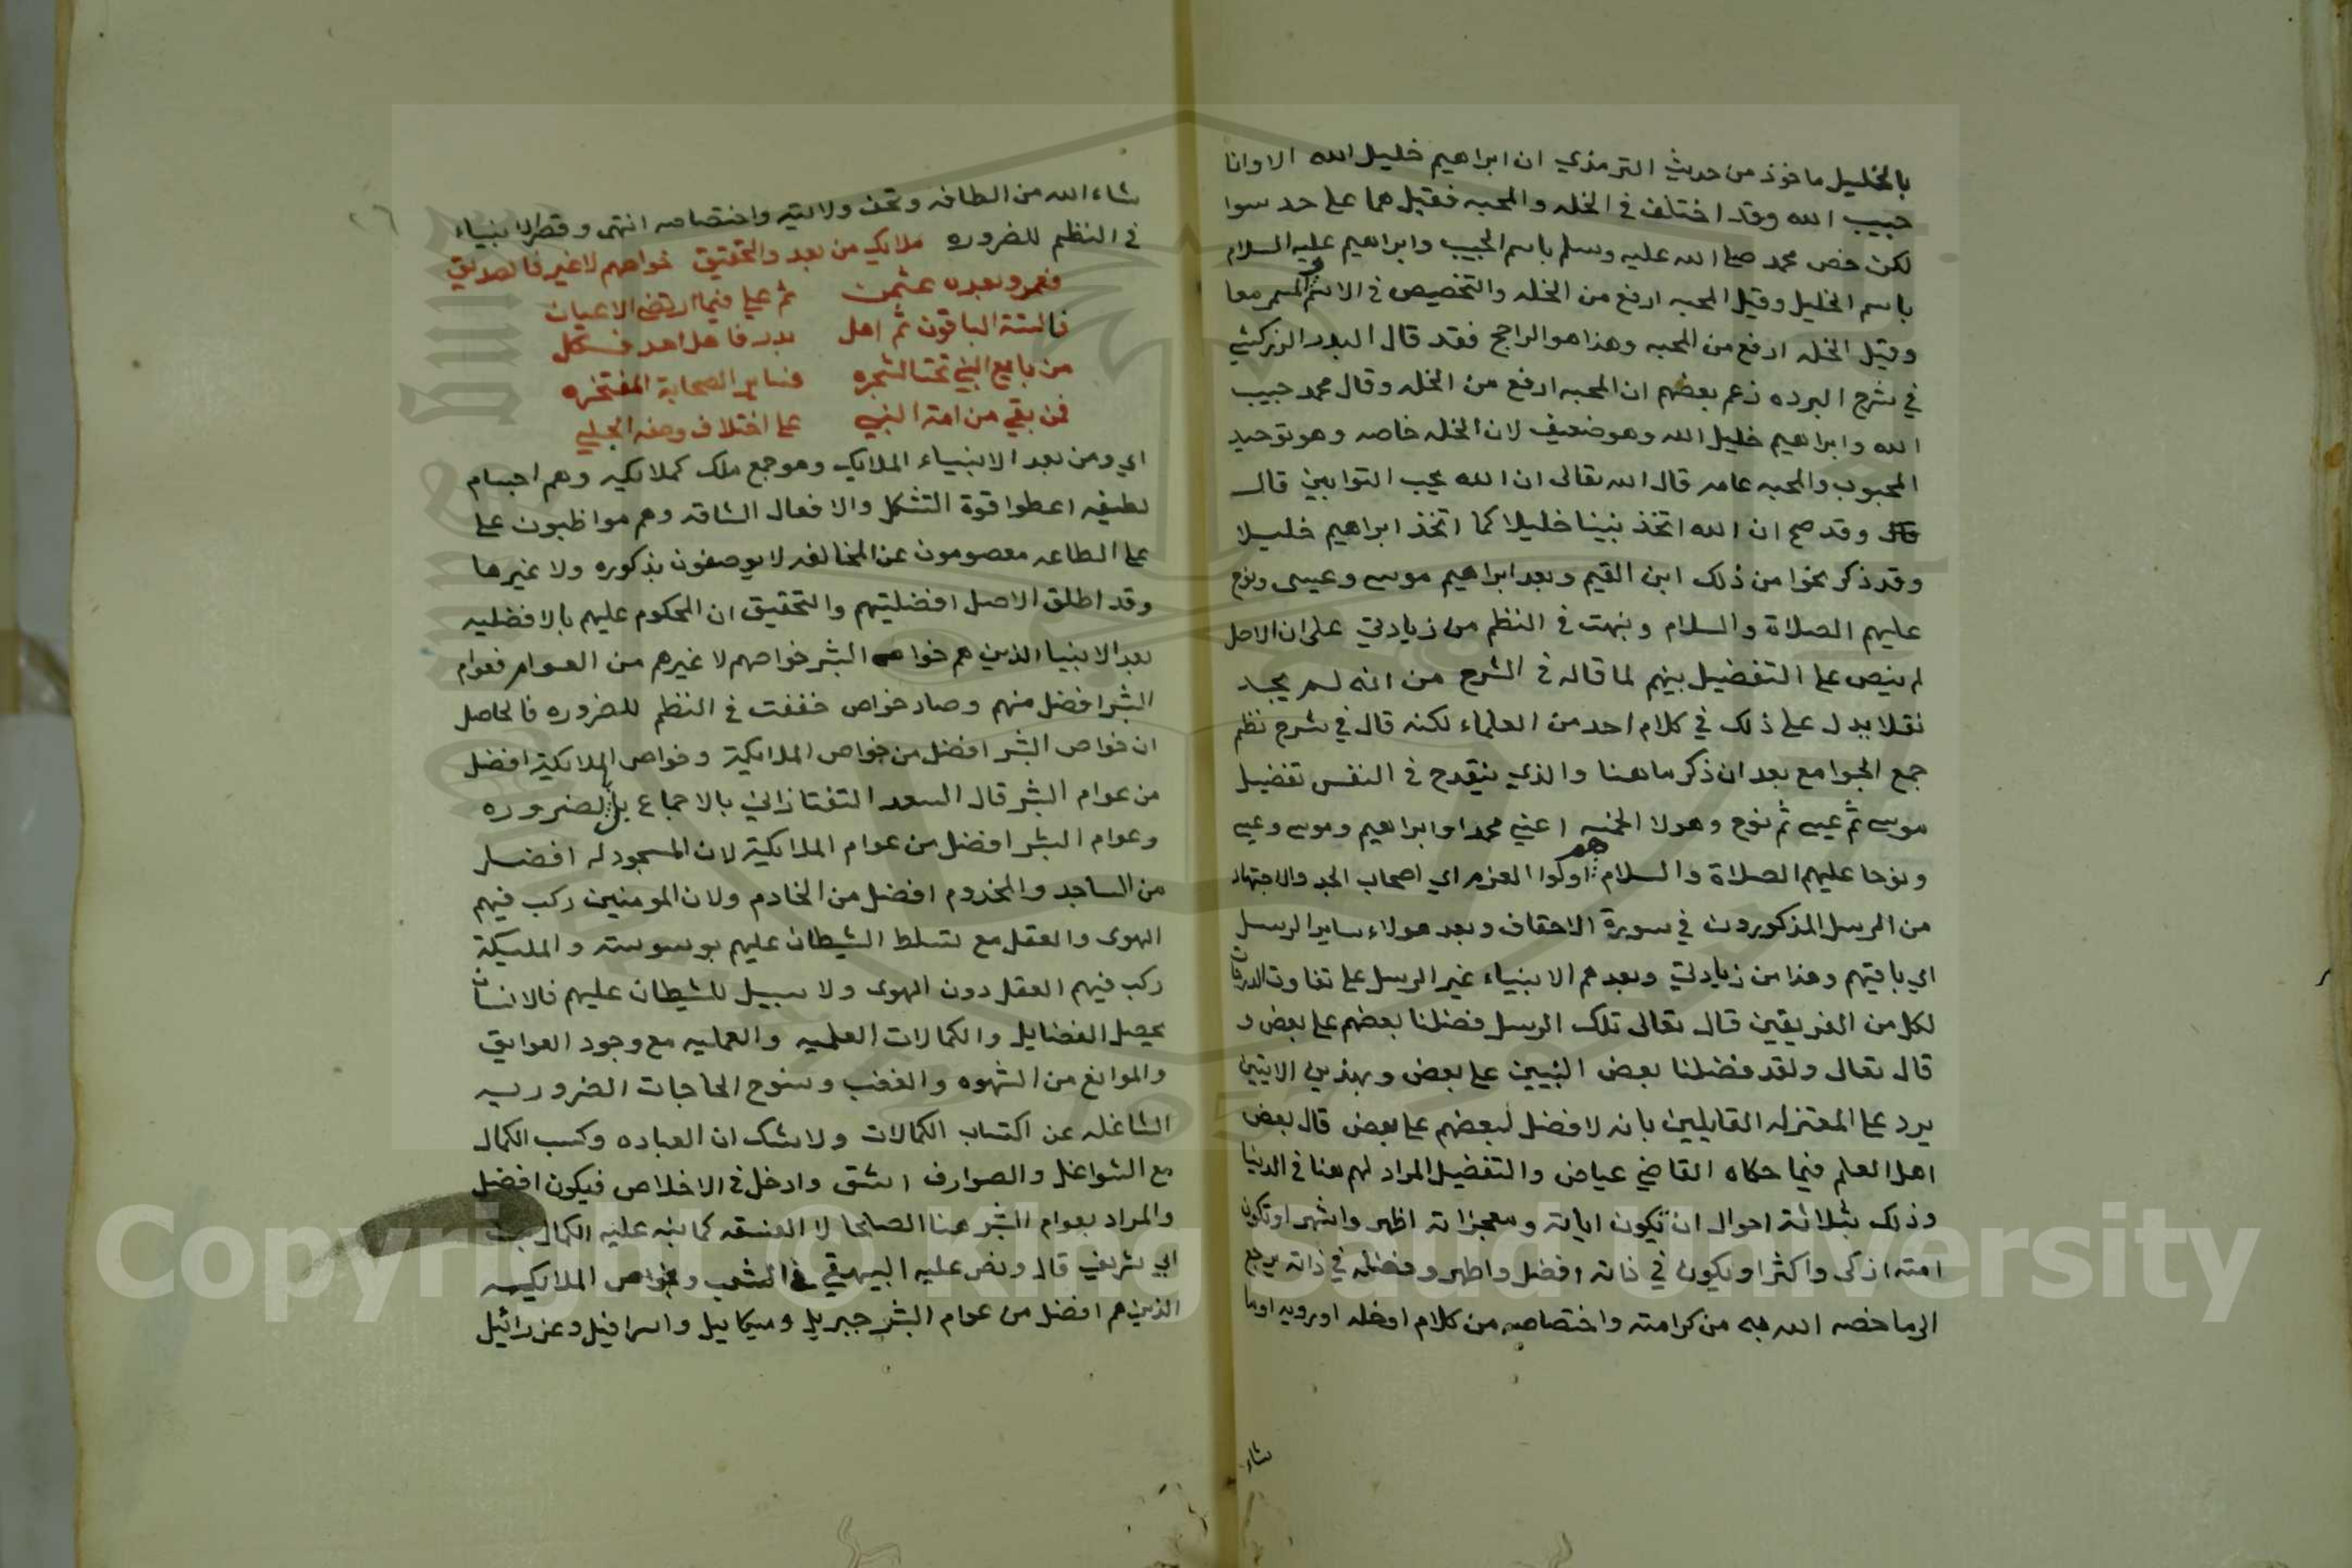 بالخليل ماخوذ من حديث الترمذي ان ابراهيم خليل الله الا وانا
حبيب الله وقد اختلف في الخله والمحبه فقيل هما على حد سوا
لكن خص محمد صلى الله عليه وسلم باسم الحبيب وابراهيم عليه السلام
باسم الخليل وقيل المحبه ارفع من الخله والتخصيص في الاسم
وقيل الخله ارفع من المحبه وهذا هو الراجح فقد قال البدر الزركشي
في شرح البرده زعم بعضهم ان المحبه ارفع من الخله وقال محمد حبيب
الله وابراهيم خليل الله وهو ضعيف لان الخله خاصه وهو توحيد
المحبوب والمحبه عامه قال الله تعالى ان الله يحب التوابين قال
وقد صح ان الله اتخذ نبينا خليلا كما اتخذ ابراهيم خليلا
وقد ذكر نحوا من ذلك ابن القيم وبعد ابراهيم موسى وعيسى ونوح
عليهم الصلاة والسلام ونبهت في النظم من زيادتي على ان الاصل
لم ينص على التفضيل بينهم لما قاله في الشرح من انه لم يجد
نقلا يدل على ذلك في كلام احد من العلماء لكنه قال في شرح نظم
جمع الجوامع بعد ان ذكر ما هنا والذي ينقدح في النفس تفضيل
موسى ثم عيسى ثم نوح وهولا الخمسه اعني محمدا وابراهيم وموسى وعيسى
ونوحا عليهم الصلاة والسلام هم اولوا العزم اي اصحاب الجد والاجتهاد
من الرسل المذكورون في سورة الاحقاف وبعد هولاء ساير الرسل
اي باقيهم وهذا من زيادتي وبعدهم الانبياء غير الرسل على تفاوت الدرجات
لكل من الفريقين قال تعالى تلك الرسل فضلنا بعضهم على بعض و
قال تعالى ولقد فضلنا بعض النبيين على بعض وبهذين الايتين
يرد على المعتزله القايلين بانه لا فضل لبعضهم على بعض قال بعض
اهل العلم فيما حكاه القاضي عياض والتفضيل المراد لهم هنا في الدنيا
وذلك بثلاثة احوال ان تكون اياته ومعجزاته اظهر واشهر او تكون
امته ازكى واكثر او يكون في ذاته افضل واطهر وفضله في ذاته يرجع
الى ما خصه الله به من كرامته واختصاصه من كلام او خله او رويه او ما
شاء
٢٦
شاء الله من الطافه وتحف ولايته واختصاصه انتهى وقصر الانبياء
في النظم للضروره ملايك من بعد والتحقيق خواصهم لا غير فالصديق
فعمر وبعده عثمن ثم علي فيما ارتضى الاعيان
فالستة الباقون ثم اهل بدر فاهل احد
من بايع النبي تحت الشجره فساير الصحابة المفتخره
فمن بقي من امة النبي على اختلاف وصفه الجلي
اي ومن بعد الانبياء الملايك وهو جمع ملك كملائكيه وهم اجسام
لطيفه اعطوا قوة التشكل والافعال الشاقه وهم مواظبون على
على الطاعه معصومون عن المخالفه لا يوصفون بذكوره ولا غيرها
وقد اطلق الاصل افضليتهم والتحقيق ان المحكوم عليهم بالافضليه
بعد الانبيا الذين هم خواص البشر خواصهم لا غيرهم من العوام فعوام
البشر افضل منهم وصاد خواص خففت في النظم للضروره فالحاصل
ان خواص البشر افضل من خواص الملائكية وخواص الملائكية افضل
من عوام البشر قال السعد التفتازاني بالاجماع بل بالضروره
وعوام البشر افضل من عوام الملائكية لان المسجود له افضل
من الساجد والمخدوم افضل من الخادم ولان المومنين ركب فيهم
الهوى والعقل مع تسلط الشيطان عليهم بوسوسته والمليكة
ركب فيهم العقل دون الهوى ولا سبيل للشيطان عليهم فالانسان
يحصل الفضايل والكمالات العلميه والعمليه مع وجود العوايق
والموانع من الشهوه والغضب وسنوح الحاجات الضروريه
الشاغله عن اكتساب الكمالات ولا شك ان العباده وكسب الكمال
مع الشواغل والصوارف اشق وادخل في الاخلاص فيكون افضل
والمراد بعوام البشر هنا الصلحا لا الفسقه كما نبه عليه الكمال بن
ابي شريف قال ونص عليه البيهقي في الشعب وخواص الملائكيه
الذين هم افضل من عوام البشر جبريل وميكاييل واسرافيل وعزرائيل
Copyright © King Saud University